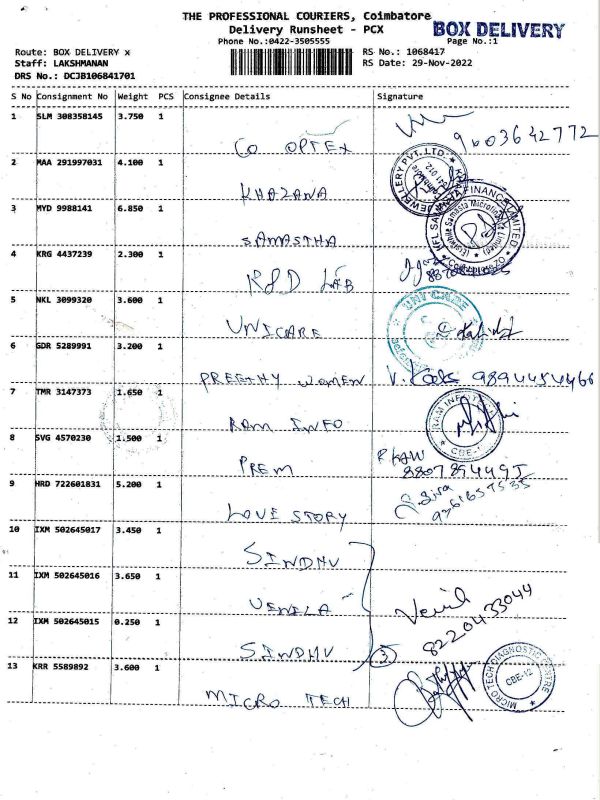 THE PROFESSIONAL COURIERS, Coimbatore
Delivery Runsheet - PCX
BOX DELIVERY
Phone No.:0422-3505555
Page No.:1
Route: BOX DELIVERY x
RS No.: 1068417
Staff: LAKSHMANAN
RS Date: 29-Nov-2022
DRS No.: DCJB106841701
S No Consignment No Weight PCS Consignee Details Signature
1 SLM 308358145 3.750 1
CO OPTEX 9003642772
2 MAA 291997031 4.100 1
KHAZANA JEWELLERY PVT. LTD.
3 MYD 9988141 6.850 1
SAMASTHA
4 KRG 4437239 2.300 1
R&D LAB
5 NKL 3099320 3.600 1
UNICARE UNICARE
6 GDR 5289991 3.200 1
PREETHY WOMEN 9894454466
7 TMR 3147373 1.650 1
RAM INFO RAM INFOTECH CBE-1
8 SVG 4570230 1.500 1
PREM
9 HRD 722601831 5.200 1
LOVE STORY
10 IXM 502645017 3.450 1
SINDHU
11 IXM 502645016 3.650 1
VENILA 8220433044
12 IXM 502645015 0.250 1
SINDHU 3
13 KRR 5589892 3.600 1
MICRO TECH MICROTECH DIAGNOSTIC CENTRE CBE-12